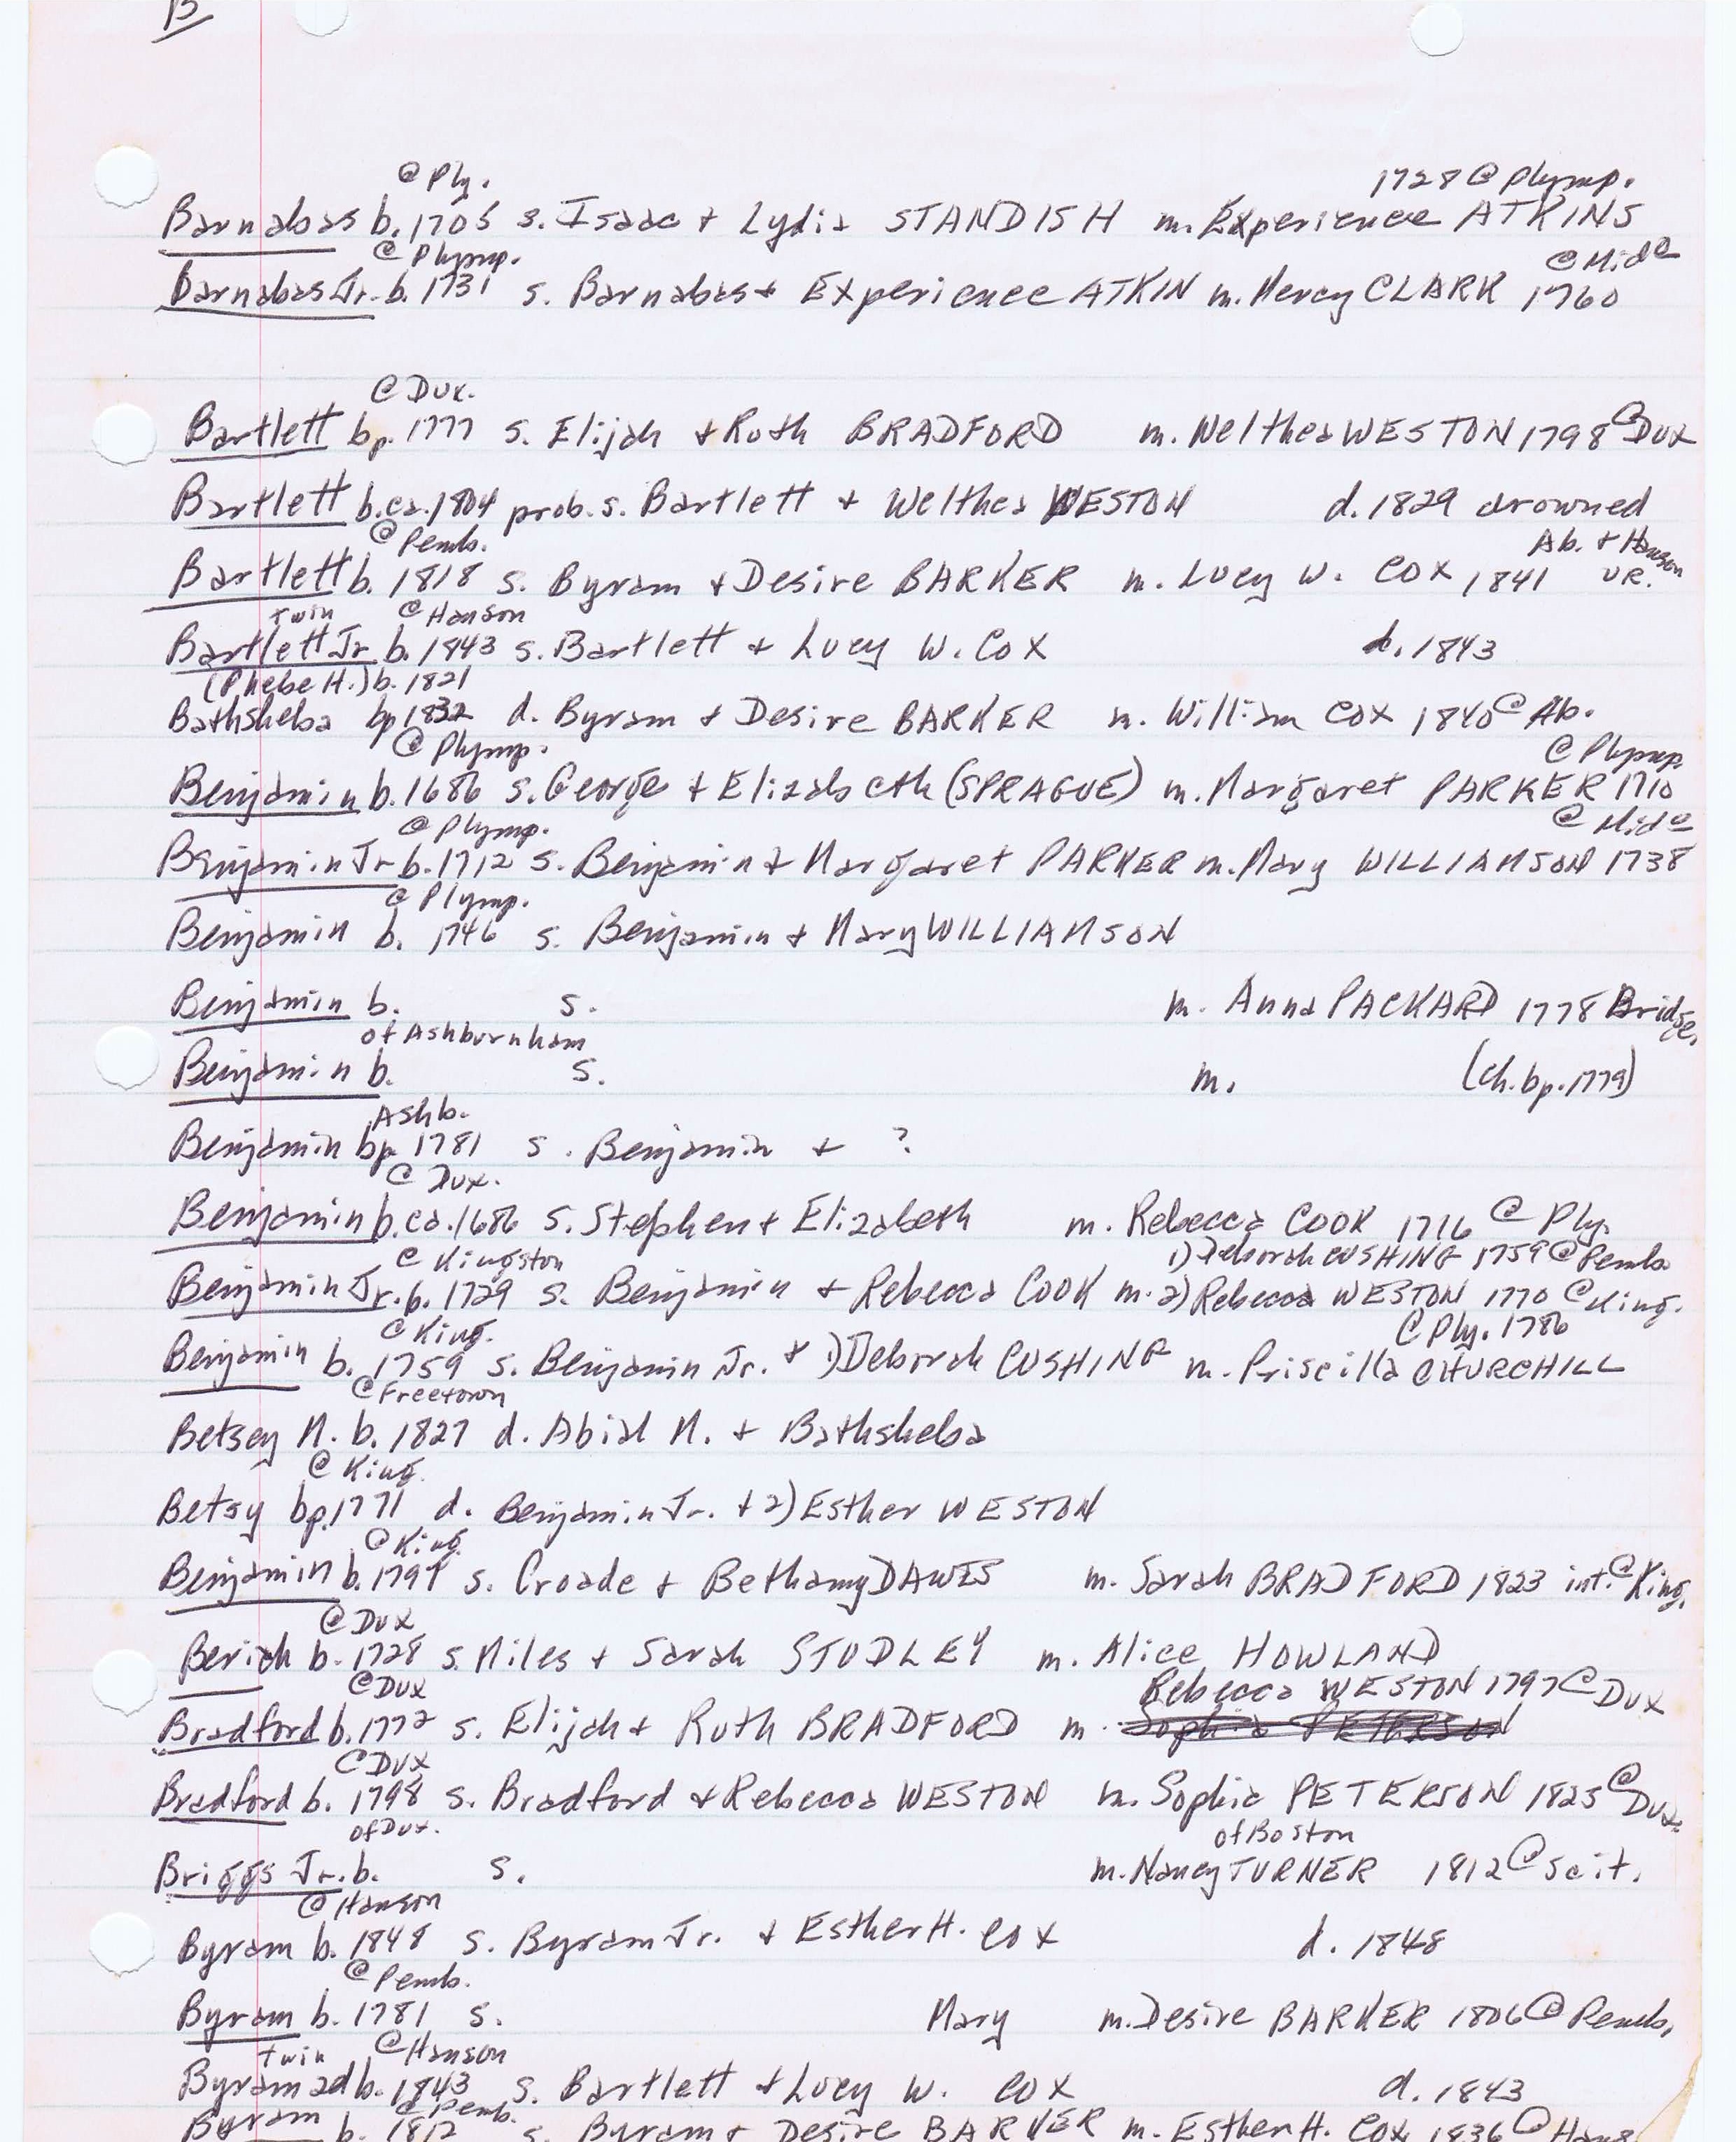 B
@ Ply. 1728 @ Plymp.
Barnabas b. 1705 s. Isaac + Lydia STANDISH m. Experience ATKINS
@ Plymp. @ Mid^o
Barnabas Jr. b. 1731 s. Barnabas + Experience ATKIN m. Mercy CLARK 1760
@ Dux.
Bartlett bp. 1777 s. Elijah + Ruth BRADFORD m. Welthea WESTON 1798 @ Dux
Bartlett b. ca. 1804 prob. s. Bartlett + Welthea WESTON d. 1829 drowned
@ Pemb. Ab. + Hanson
Bartlett b. 1818 s. Byram + Desire BARKER m. Lucy W. COX 1841 VR.
twin @ Hanson
Bartlett Jr. b. 1843 s. Bartlett + Lucy W. COX d. 1843
(Phebe H.) b. 1821
Bathsheba bp 1832 d. Byram + Desire BARKER m. William COX 1840 @ Ab.
@ Plymp. @ Plymp.
Benjamin b. 1686 s. George + Elizabeth (SPRAGUE) m. Margaret PARKER 1710
@ Plymp. @ Mid^o
Benjamin Jr b. 1712 s. Benjamin + Margaret PARKER m. Mary WILLIAMSON 1738
@ Plymp.
Benjamin b. 1746 s. Benjamin + Mary WILLIAMSON
Benjamin b. s. m. Anna PACKARD 1778 Bridge.
of Ashburnham
Benjamin b. s. m. (ch. bp. 1779)
Ashb.
Benjamin bp. 1781 s. Benjamin + ?
@ Dux.
Benjamin b. ca. 1686 s. Stephen + Elizabeth m. Rebecca COOK 1716 @ Ply.
@ Kingston 1) Deborah CUSHING 1759 @ Pemb.
Benjamin Jr. b. 1729 s. Benjamin + Rebecca COOK m. 2) Rebecca WESTON 1770 @ King.
@ King. @ Ply. 1786
Benjamin b. 1759 s. Benjamin Jr. + 1) Deborah CUSHING m. Priscilla CHURCHILL
@ Freetown
Betsey M. b. 1827 d. Abial M. + Bathsheba
@ King.
Betsy bp. 1771 d. Benjamin Jr. + 2) Esther WESTON
@ King.
Benjamin b. 1797 s. Croade + Bethany DAWES m. Sarah BRADFORD 1823 int. @ King.
@ Dux
Beriah b. 1728 s. Miles + Sarah STUDLEY m. Alice HOWLAND
@ Dux Rebecca WESTON 1797 @ Dux
Bradford b. 1772 s. Elijah + Ruth BRADFORD m. Sophia PETERSON
@ Dux
Bradford b. 1798 s. Bradford + Rebecca WESTON m. Sophia PETERSON 1825 @ Dux.
of Dux. of Boston
Briggs Jr. b. s. m. Nancy TURNER 1812 @ Scit.
@ Hanson
Byram b. 1848 s. Byram Jr. + Esther H. COX d. 1848
@ Pemb.
Byram b. 1781 s. Mary m. Desire BARKER 1806 @ Pemb.
twin @ Hanson
Byram 2d b. 1843 s. Bartlett + Lucy W. COX d. 1843
@ Pemb.
Byram b. 1812 s. Byram + Desire BARKER m. Esther H. COX 1836 @ Hans